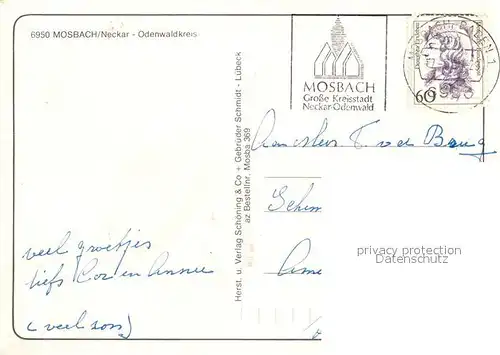 6950 MOSBACH/Neckar - Odenwaldkreis
MOSBACH
Große Kreisstadt
Neckar-Odenwald
60
BADEN 1
Herst. u. Verlag Schöning & Co + Gebrüder Schmidt - Lübeck
az Bestellnr. Mosba 369
v d Brug
veel groetjes
liefs Cor en Annie
(veel son)
privacy protection
Datenschutz